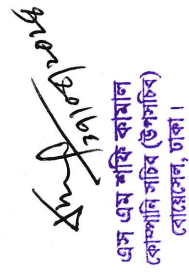 এস এম শফি কামাল
কোম্পানি সচিব (উপসচিব)
বোয়েসেল, ঢাকা।